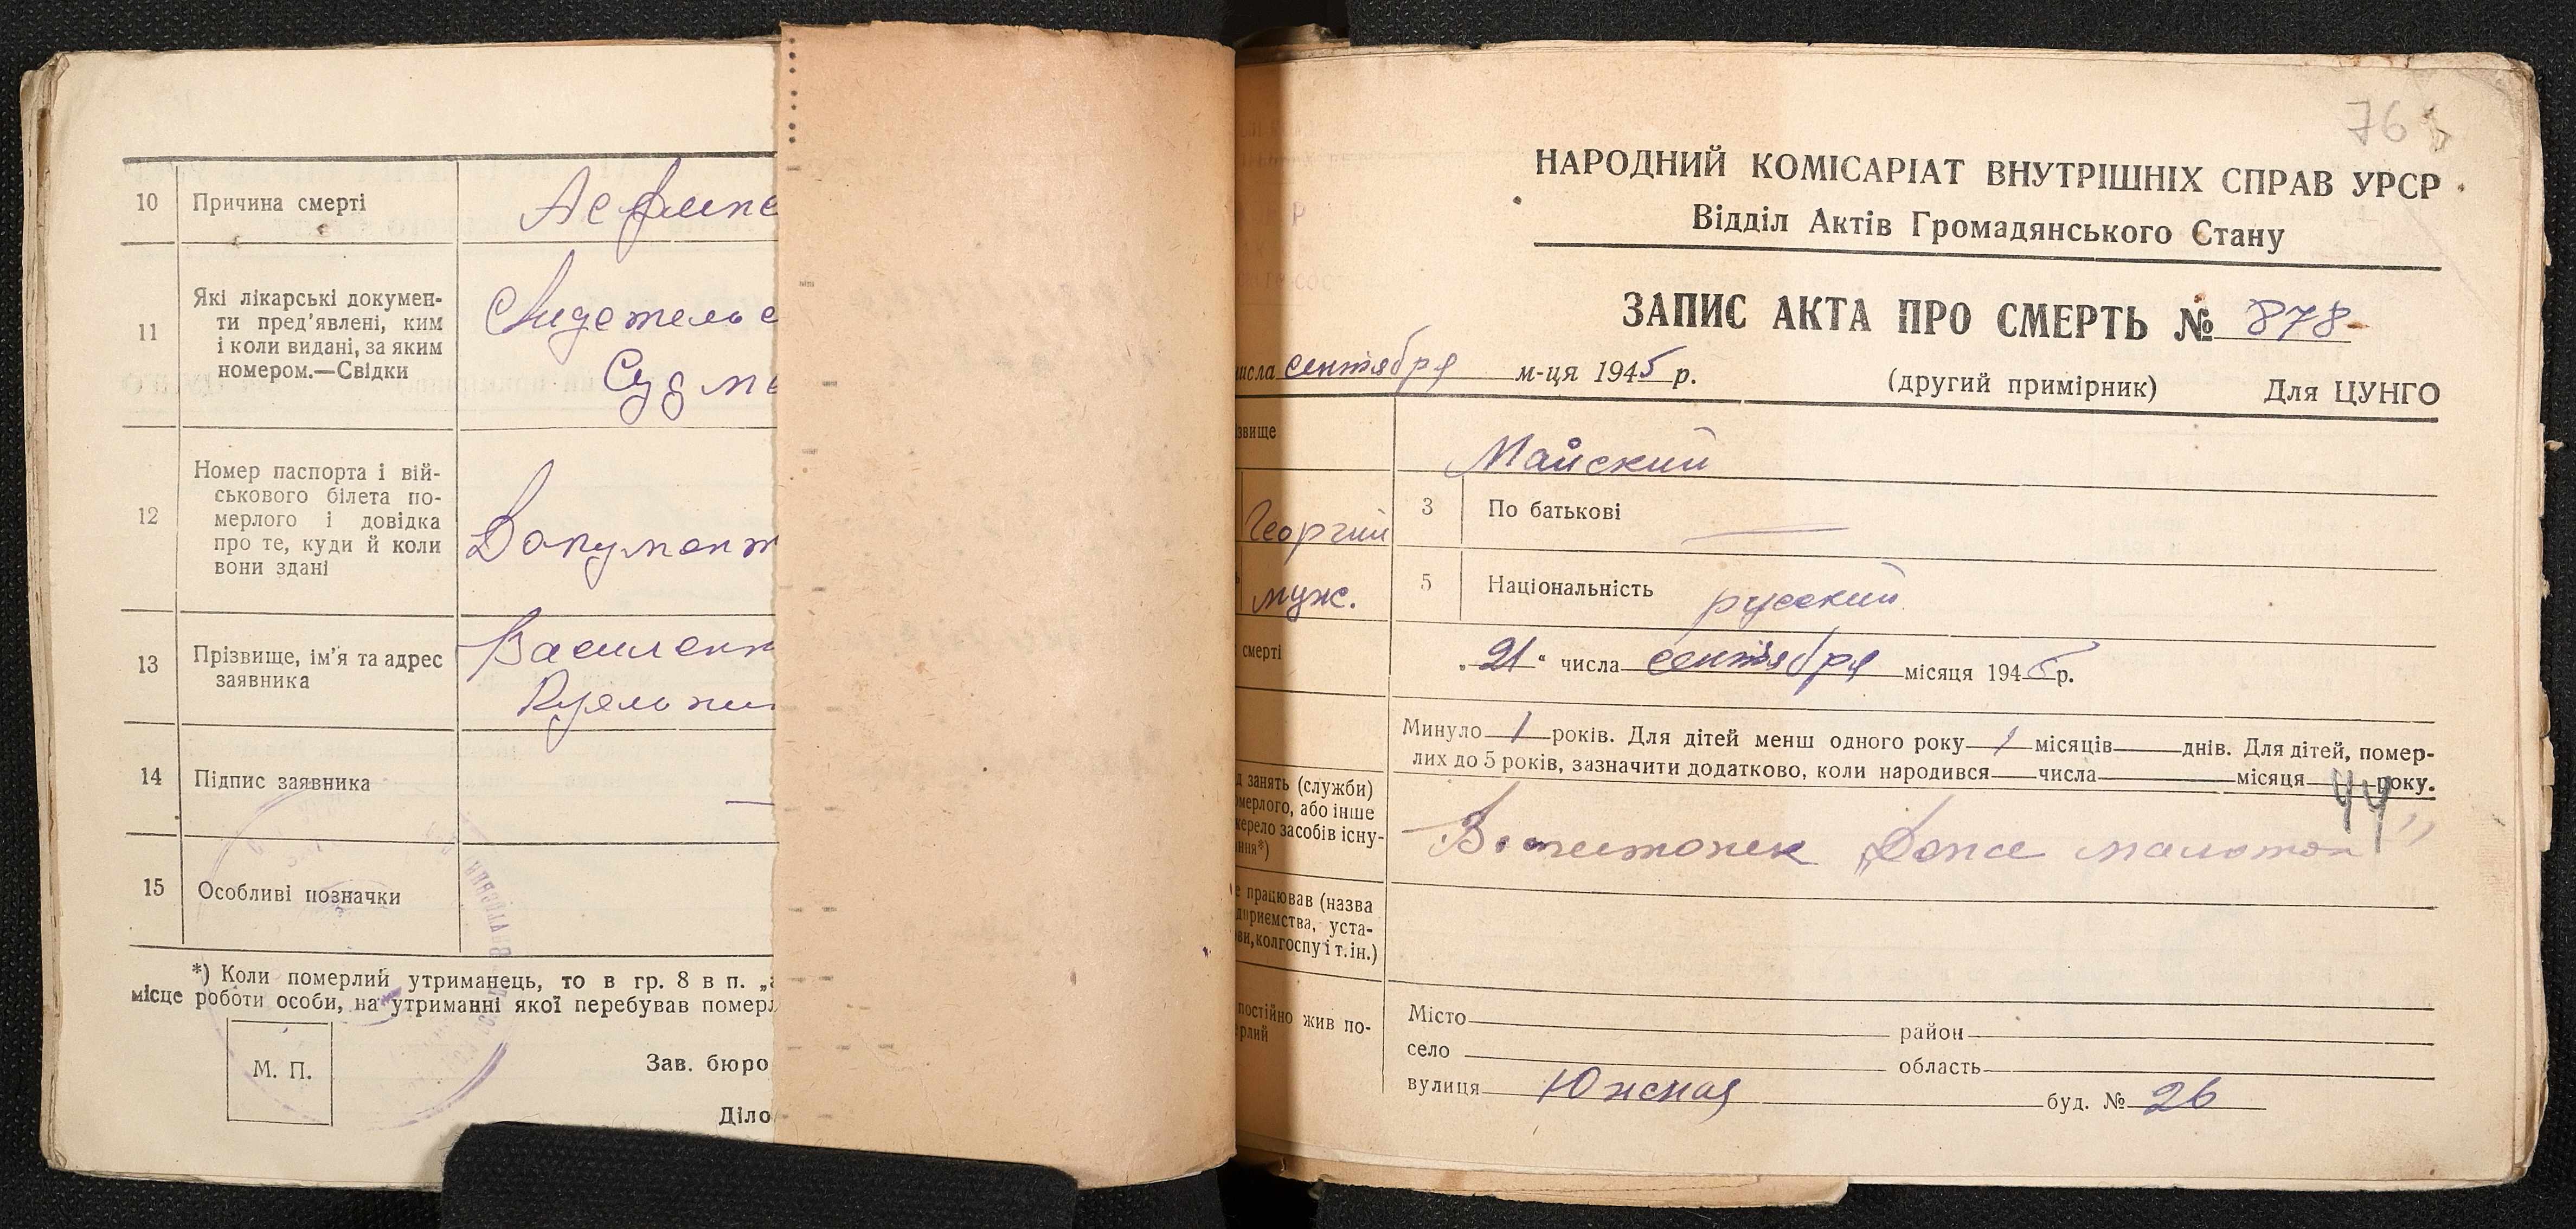 10 Причина смерті Асфикс
11 Які лікарські докумен-
ти пред'явлені, ким
і коли видані, за яким
номером.—Свідки
Свидетельс
Суд ме
12 Номер паспорта і вій-
ськового білета по-
мерлого і довідка
про те, куди й коли
вони здані
Документ
13 Прізвище, ім'я та адрес
заявника
Василенк
14 Підпис заявника —
15 Особливі позначки
*) Коли померлий утриманець, то в гр. 8 в п. „а
місце роботи особи, на утриманні якої перебував помер
М. П.
Зав. бюро
Діло
76
НАРОДНИЙ КОМІСАРІАТ ВНУТРІШНІХ СПРАВ УРСР
Відділ Актів Громадянського Стану
ЗАПИС АКТА ПРО СМЕРТЬ № 878
числа сентября м-ця 1945 р. (другий примірник) Для ЦУНГО
звище Майский
Георгий 3 По батькові —
муж. 5 Національність русский
смерті „21“ числа сентября місяця 1945 р.
Минуло 1 років. Для дітей менш одного року 1 місяців днів. Для дітей, помер-
лих до 5 років, зазначити додатково, коли народився числа місяця 44 року.
д занять (служби)
мерлого, або інше
жерело засобів існу-
ання*)
Дома
е працював (назва
дприємства, уста-
ви, колгоспу і т. ін.)
постійно жив по-
ерлий
Місто район
село область
вулиця Южная буд. № 26